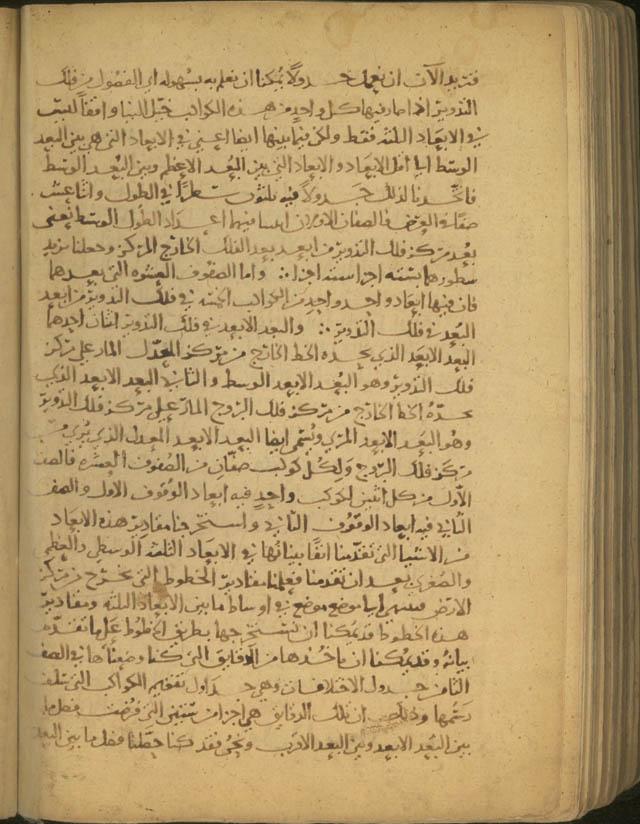 فنريد الآن ان نعمل جدولا يمكنا ان نعلم به بسهوله اي الفصول من فلك
التدوير اذا صار فيها كل واحد من هذه الكواكب خيل الينا واقفا ليس
في الابعاد الثلثة فقط ولكن فيما بينها ايضا اعني في الابعاد التي هي بين البعد
الوسط الى اقل الابعاد والابعاد التي بين البعد الاعظم وبين البعد الوسط
فاتخذنا لذلك جدولا فيه ثلثون سطرا في الطول واثنا عشر
صفا في العرض فالصفان الاولان اثبتنا فيهما اعداد الطول الوسط نعني
بعد مركز فلك التدوير من ابعد بعد الفلك الخارج المركز وجعلنا تزيد
سطورهما بستة اجزا ستة اجزا واما الصفوف العشره التي بعدهما
فان فيها ابعاد واحد واحد من الكواكب الخمسة في فلك التدوير من ابعد
البعد في فلك التدوير والبعد الابعد في فلك التدوير اثنان احدهما
البعد الابعد الذي يحده الخط الخارج من مركز المعدل المار على مركز
فلك التدوير وهو البعد الابعد الوسط والثاني البعد الابعد الذي
يحده الخط الخارج من مركز فلك البروج المار على مركز فلك التدوير
وهو البعد الابعد المرئي ويسمى ايضا البعد الابعد المعدل الذي يرى من
مركز فلك البروج ولكل كوكب صفان من الصفوف العشره فالصف
الاول من كل اثنين لكوكب واحد فيه ابعاد الوقوف الاول والصف
الثاني فيه ابعاد الوقوف الثاني واستخرجنا مقادير هذه الابعاد
من الاشيا التي تقدمنا انفا ببيانها في الابعاد الثلثة الوسطى والعظمى
والصغرى بعد ان تقدمنا فعلمنا مقادير الخطوط التي تخرج من مركز
الارض الى موضع موضع في اوساط ما بين الابعاد الثلثة ومقادير
هذه الخطوط قد يمكنا ان نستخرجها بطريق الخطوط على ما تقدم
بيانه وقد يمكنا ان ناخذها من الدقايق التي كنا وضعناها في الصف
الثامن جدول الاختلافات وهي جداول تقويم الكواكب التي
رسمها وذلك ان تلك الدقايق هي اجزا من ستين التي فرضت فضل ما
بين البعد الابعد وبين البعد الاقرب ونحن فقد كنا حصلنا فضل ما بين البعد